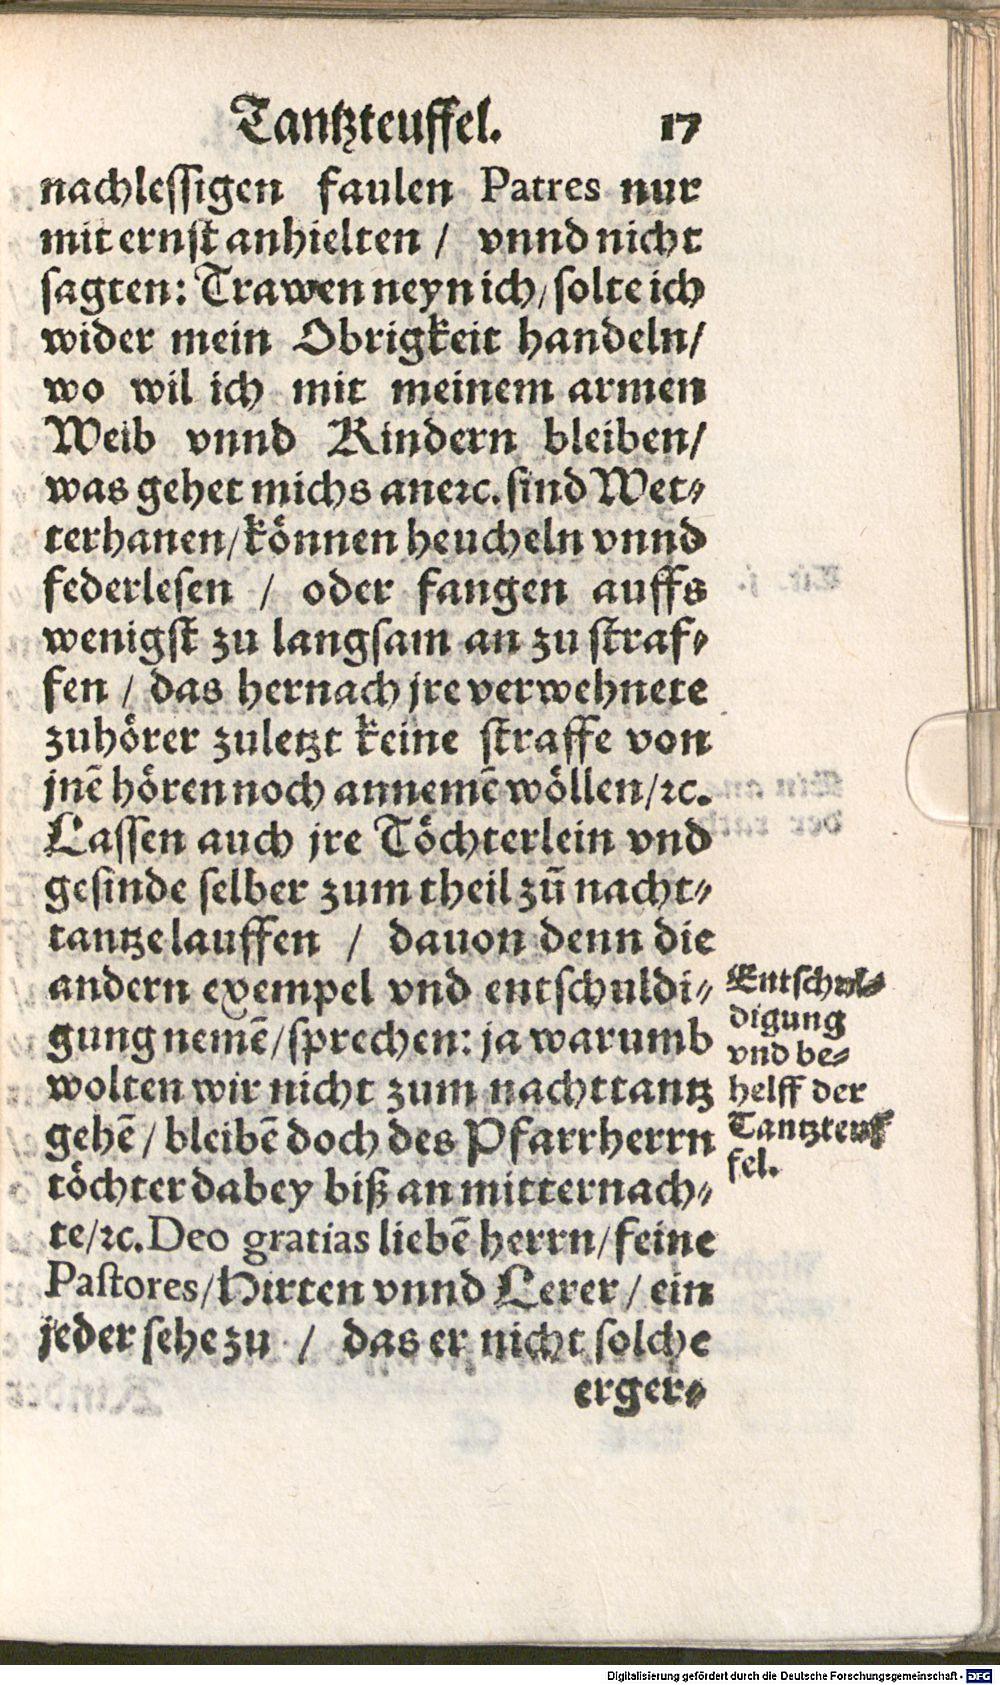 Tantzteuffel. 17
nachlessigen faulen Patres nur
mit ernst anhielten / vnnd nicht
sagten: Trawen neyn ich / solte ich
wider mein Obrigkeit handeln /
wo wil ich mit meinem armen
Weib vnnd Kindern bleiben /
was gehet michs an ꝛc. sind Wet⸗
terhanen / können heucheln vnnd
federlesen / oder fangen auffs
wenigst zu langsam an zu straf⸗
fen / das hernach jre verwehnete
zuhörer zuletzt keine straffe von
jnē hören noch annemē wöllen / ꝛc.
Lassen auch jre Töchterlein vnd
gesinde selber zum theil zū nacht⸗
tantze lauffen / dauon denn die
andern exempel vnd entschuldi⸗
gung nemē / sprechen: ja warumb
wolten wir nicht zum nachttantz
gehē / bleibē doch des Pfarrherrn
töchter dabey biß an mitternach⸗
te / ꝛc. Deo gratias liebē herrn / feine
Pastores / Hirten vnnd Lerer / ein
jeder sehe zu / das er nicht solche
erger⸗
Entschul⸗
digung
vnd be⸗
helff der
Tantzteuf
fel.
Digitalisierung gefördert durch die Deutsche Forschungsgemeinschaft - DFG